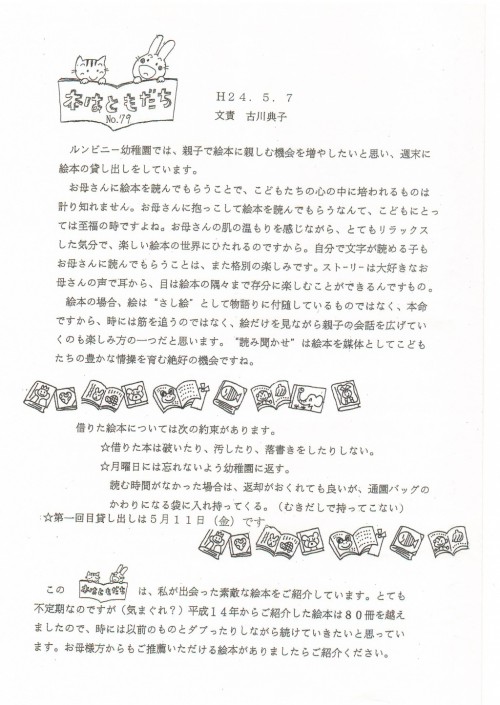 本はともだち
No.79
H24.5.7
文責 古川典子
ルンビニー幼稚園では、親子で絵本に親しむ機会を増やしたいと思い、週末に
絵本の貸し出しをしています。
お母さんに絵本を読んでもらうことで、こどもたちの心の中に培われるものは
計り知れません。お母さんに抱っこして絵本を読んでもらうなんて、こどもにとっ
ては至福の時ですよね。お母さんの肌の温もりを感じながら、とてもリラックス
した気分で、楽しい絵本の世界にひたれるのですから。自分で文字が読める子も
お母さんに読んでもらうことは、また格別の楽しみです。ストーリーは大好きなお
母さんの声で耳から、目は絵本の隅々まで存分に楽しむことができるんですもの。
絵本の場合、絵は“さし絵”として物語りに付随しているものではなく、本命
ですから、時には筋を追うのではなく、絵だけを見ながら親子の会話を広げてい
くのも楽しみ方の一つだと思います。“読み聞かせ”は絵本を媒体としてこども
たちの豊かな情操を育む絶好の機会ですね。
借りた絵本については次の約束があります。
☆借りた本は破いたり、汚したり、落書きをしたりしない。
☆月曜日には忘れないよう幼稚園に返す。
読む時間がなかった場合は、返却がおくれても良いが、通園バッグの
かわりになる袋に入れ持ってくる。(むきだしで持ってこない)
☆第一回目貸し出しは5月11日(金)です
この 本はともだち は、私が出会った素敵な絵本をご紹介しています。とても
不定期なのですが(気まぐれ?)平成14年からご紹介した絵本は80冊を越え
ましたので、時には以前のものとダブったりしながら続けていきたいと思ってい
ます。お母様方からもご推薦いただける絵本がありましたらご紹介ください。